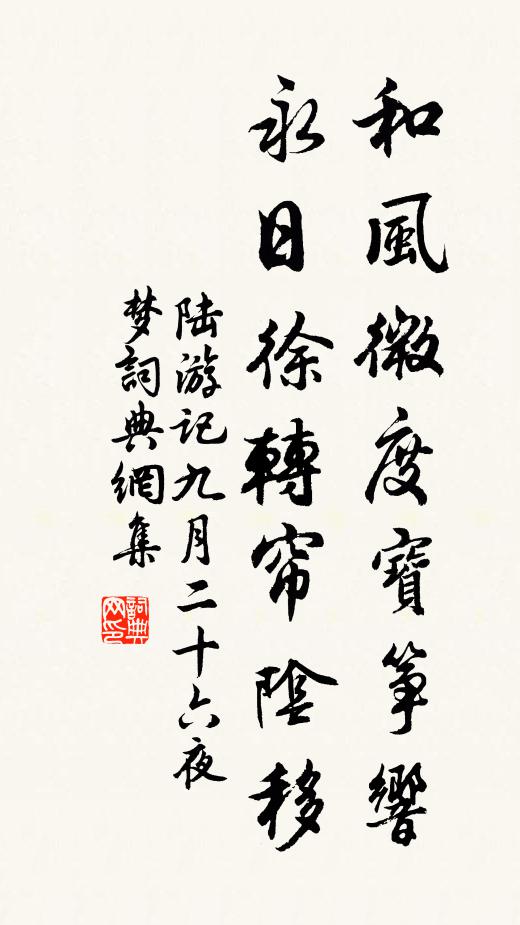 和風微度寶筝響
永日徐轉帘陰移
陆游记九月二十六夜
梦詞典網集
詞典
网印